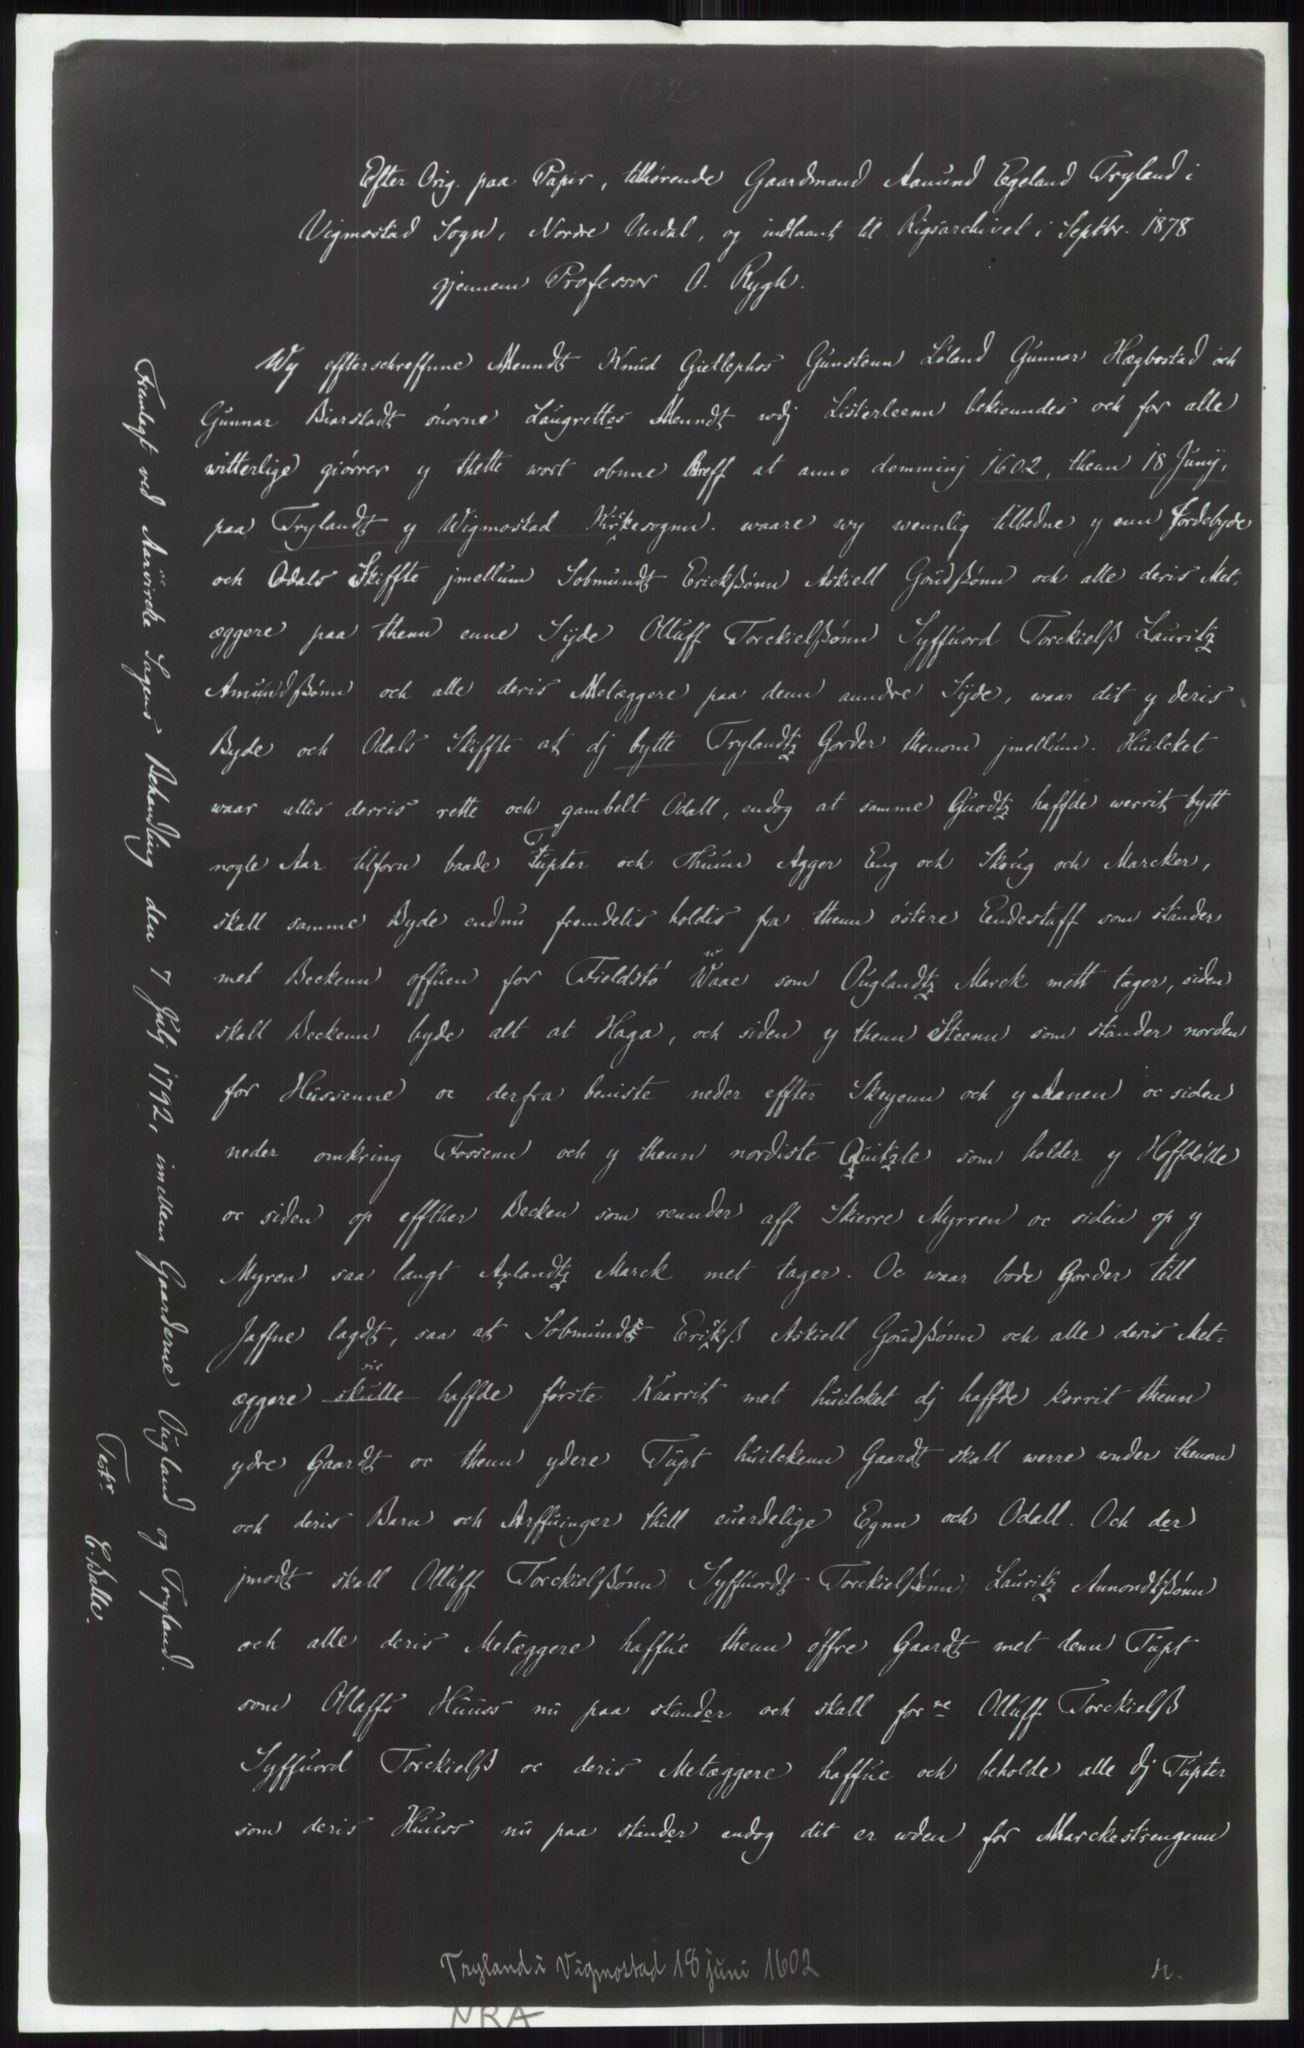 1602
Efter Orig. paa Papir, tilhørende Gaardmand Aamund Egeland Tryland i
Vigmostad Sogn, Nordre Undal, og indlaant til Rigsarchivet i Septbr. 1878
gjennem Professor O. Rygh.
Wy effterschreffne Menndt Knud Gietlephos Gunstenn Løland Gunnar Hægbostad och
Gunnar Biarstadt suorne Laugrettes Menndt wdj Listerleenn bekienndes och for alle
witterlige giørrer y thette wort obnne Breff at anno domminj 1602, thenn 18 Junij,
paa Trylandt y Wigmostad Kirkesognn. waare wy wennlig tilbedne y enn Jordebyde
och Odals Skiffte jmellum Sobmundt Erickßønn Askiell Goudßønn och alle deris Met-
æggere paa thenn enne Sijde Olluff Torckielßønn Syffuord Torckielß Lauritz
Amundßønn och alle deris Metæggere paa denn anndre Sijde, waar dit y deris
Byde och Odals Skiffte at dj bytte Trylandtz Gorder thenom jmellum. Huilcket
waar allis derris rette och gambelt Odall, endog at samme Guodtz haffde werrit bytt
nogle Aar tilforn baade Tupter och Thuun Agger Eng och Skoug och Marcker,
skall samme Byde endnu fremdelis holdis fra thenn östere Eendestaff som stander
met Beckenn offuen for Fieldstö Waae som Ouglandtz Marck mett tager, siden
skall Beckenn byde alt at Haga, och siden y thenn Steenn som stander norden
for Hussenne oc derfra beniste neder effter Skeyenn och y Aanen oc siden
neder omkring Fossenn och y thenn nordiste Quitzle som holder y Hoffdölle
oc siden op effther Becken som rennder aff Skierre Myrren oc siden op y
Myren saa langt Aylandtz Marck met tager. Oc waar bode Gorder till
Jaffne lagdt, saa at Sobmundt Erikß Askiell Goudßønn och alle deris Met-
sic
æggere skulle haffde förste Kaarrit met huilcket dj haffde korrit thenn
ydre Gaardt oc thenn ydere Tupt huilckenn Gaardt skall werre wnder thenom
och deris Barn och Arffuinger thill euerdelige Egnn och Odall. Och der
jmodt skall Olluff Torckielßønn Syffuordt Torckielßønn Lauritz Amondtßønn
och alle deris Metæggere haffue thenn öffre Gaardt met denn Tupt
som Ollaffs Huuss nu paa stander och skall forne Olluff Torckielß
Syffuord Torckielß oc deris Metæggere haffue och beholde alle dj Tupter
som deris Huuss nu paa stander endog dit er wden for Marckestrengenn
Fremlagt ved Aarsirche Sagens Behandling den 7 Julj 1792, imellem Gaarderne Ougland og Tryland.
Testr
E. Balle.
Tryland i Vigmostad 18 juni 1602
NRA